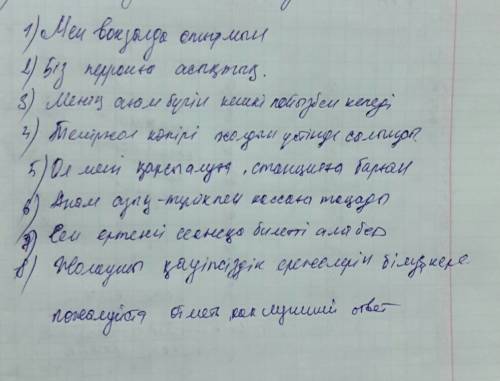 1) Мен вокзалда отырмын
2) Біз перронға асықтық.
3) Менің атам бүгін кешкі пойызбен келеді
4) Теміржол көпірі жолдың үстінде салынды.
5) Ол мені қарсы алуға, станцияға барған
6) Анам азық-түлікпен кассаға тоқтады
7) Сен ертеңгі сеансқа билетті ала бер
8) Жолаушы қауіпсіздік ережелерін білу керек
пожалуйста отметь как лучший ответ